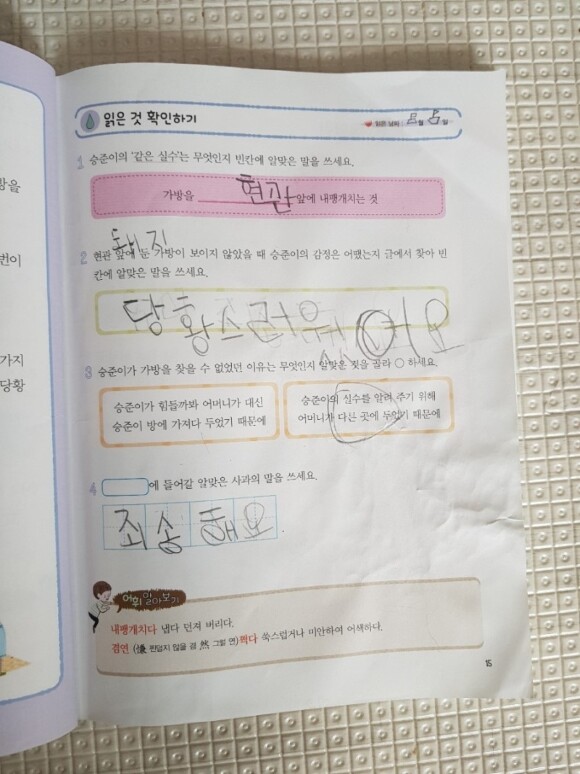 읽은 것 확인하기
읽은 날짜 월 일
1 승준이의 '같은 실수'는 무엇인지 빈칸에 알맞은 말을 쓰세요.
가방을 현관 앞에 내팽개치는 것
돼지
2 현관 앞에 둔 가방이 보이지 않았을 때 승준이의 감정은 어땠는지 글에서 찾아 빈
칸에 알맞은 말을 쓰세요.
당황스러웠어요
3 승준이가 가방을 찾을 수 없었던 이유는 무엇인지 알맞은 것을 골라 ○ 하세요.
승준이가 힘들까봐 어머니가 대신
승준이 방에 가져다 두었기 때문에
승준이의 실수를 알려 주기 위해
어머니가 다른 곳에 두었기 때문에
4 에 들어갈 알맞은 사과의 말을 쓰세요.
죄송해요.
어휘 알아보기
내팽개치다 냅다 던져 버리다.
겸연 (慊 찐덥지 않을 겸 然 그럴 연)쩍다 쑥스럽거나 미안하여 어색하다.
15
방을
번이
가지
당황